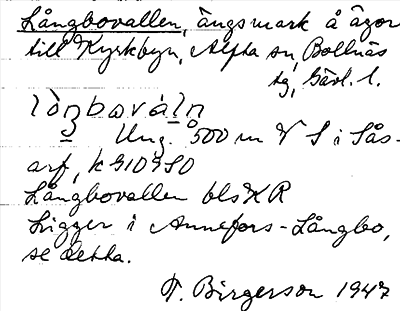 Långbovallen, ängsmark å ägor
till Kyrkbyn, Alfta sn, Bollnäs
tg, Gävl. l.
lòŋbωvàln
Ung. 500 m V S i Sås-
arf, k 910950
Långbovallen bls KR
Ligger i Annefors-Långbo,
se detta.
F. Birgerson 1947